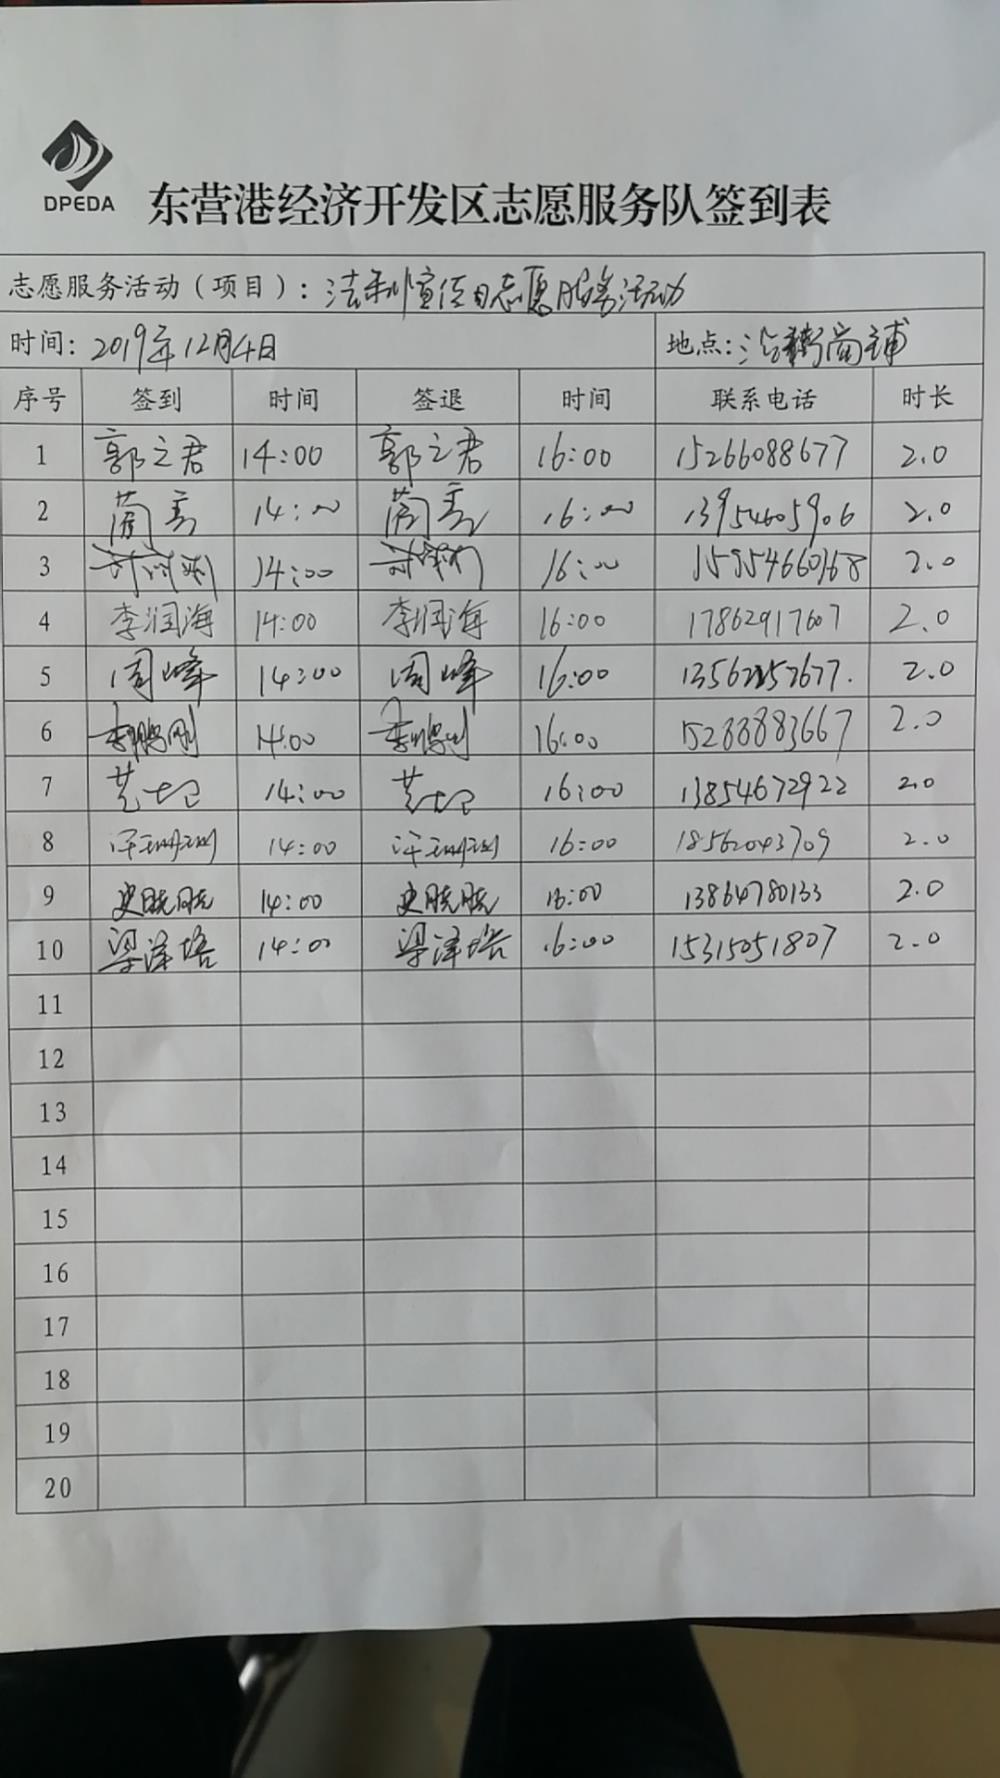 DPEDA
东营港经济开发区志愿服务队签到表
志愿服务活动（项目）：法制宣传日志愿服务活动
时间：2019年12月4日 地点：沿街商铺
序号 签到 时间 签退 时间 联系电话 时长
1 郭之君 14:00 郭之君 16:00 15266088677 2.0
2 14:00 16:00 13954605906 2.0
3 14:00 16:00 2.0
4 李润海 14:00 李润海 16:00 17862917607 2.0
5 周峰 14:00 周峰 16:00 2.0
6 李鹏刚 14:00 李鹏刚 16:00 15288883667 2.0
7 14:00 16:00 13854672922 2.0
8 14:00 16:00 18562043709 2.0
9 史晓晓 14:00 史晓晓 16:00 13864780133 2.0
10 梁泽塔 14:00 梁泽塔 16:00 15315051807 2.0
11
12
13
14
15
16
17
18
19
20